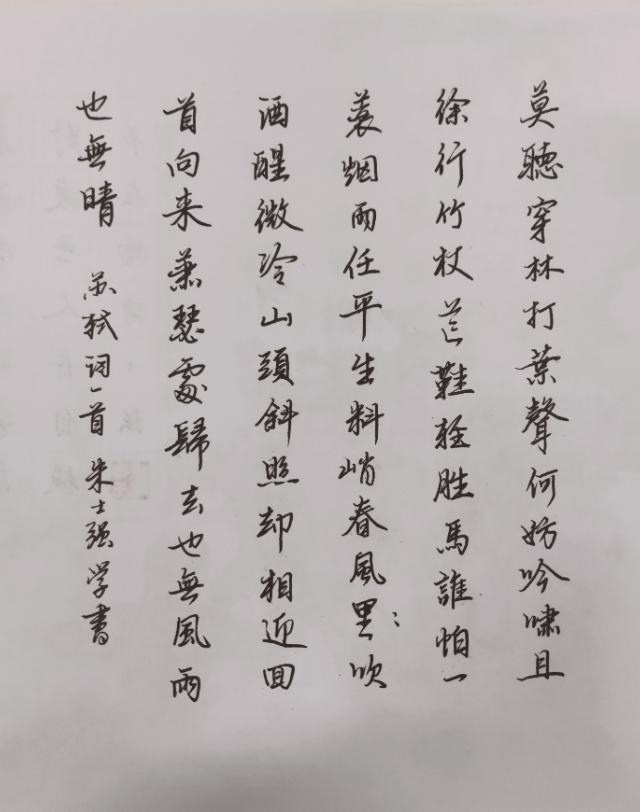 莫聽穿林打葉聲何妨吟嘯且
徐行竹杖芒鞋輕胜馬誰怕一
蓑烟雨任平生料峭春風里：吹
酒醒微冷山頭斜照却相迎回
首向来萧瑟處歸去也無風雨
也無晴 苏轼词一首 朱士强学書